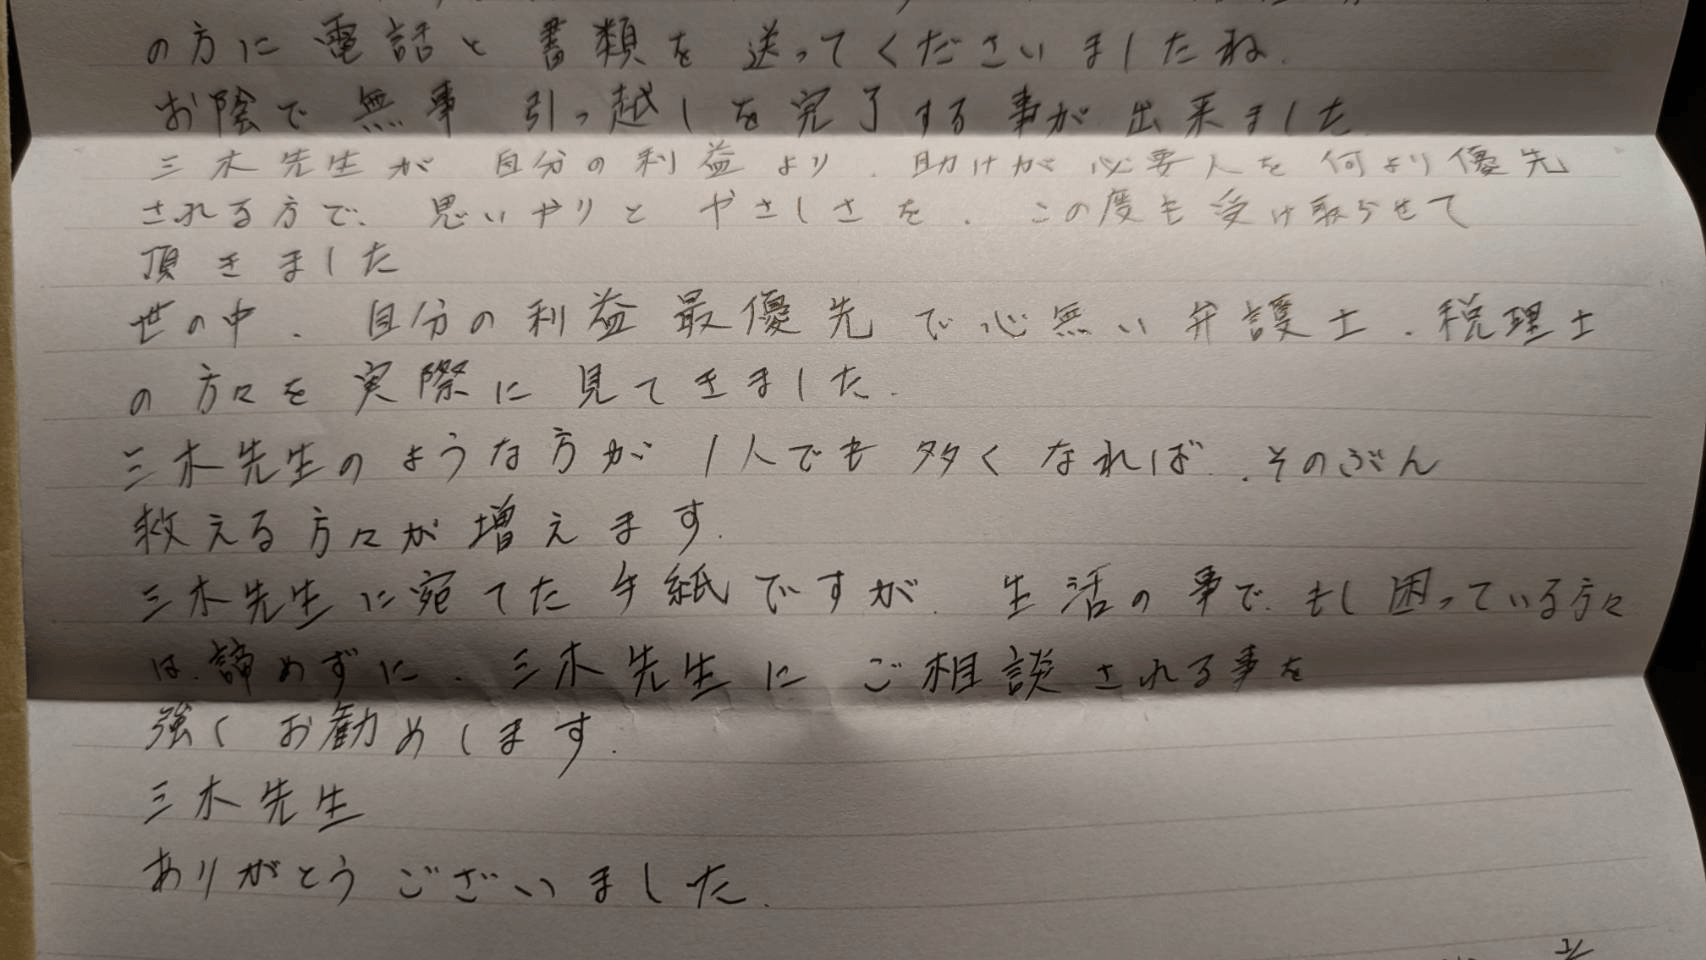 の方に電話と書類を送ってくださいましたね.
お陰で無事 引っ越しを完了する事が出来ました
三木先生が 自分の利益より、助けが必要人を何より優先
される方で、思いやりと やさしさを、この度も受け取らせて
頂きました
世の中、自分の利益最優先で心無い弁護士、税理士
の方々を実際に見てきました.
三木先生のような方が 1人でも多くなれば、そのぶん
救える方々が増えます.
三木先生に宛てた手紙ですが、生活の事で、もし困っている方々
は、諦めずに、三木先生に ご相談される事を
強くお勧めします.
三木先生
ありがとうございました.